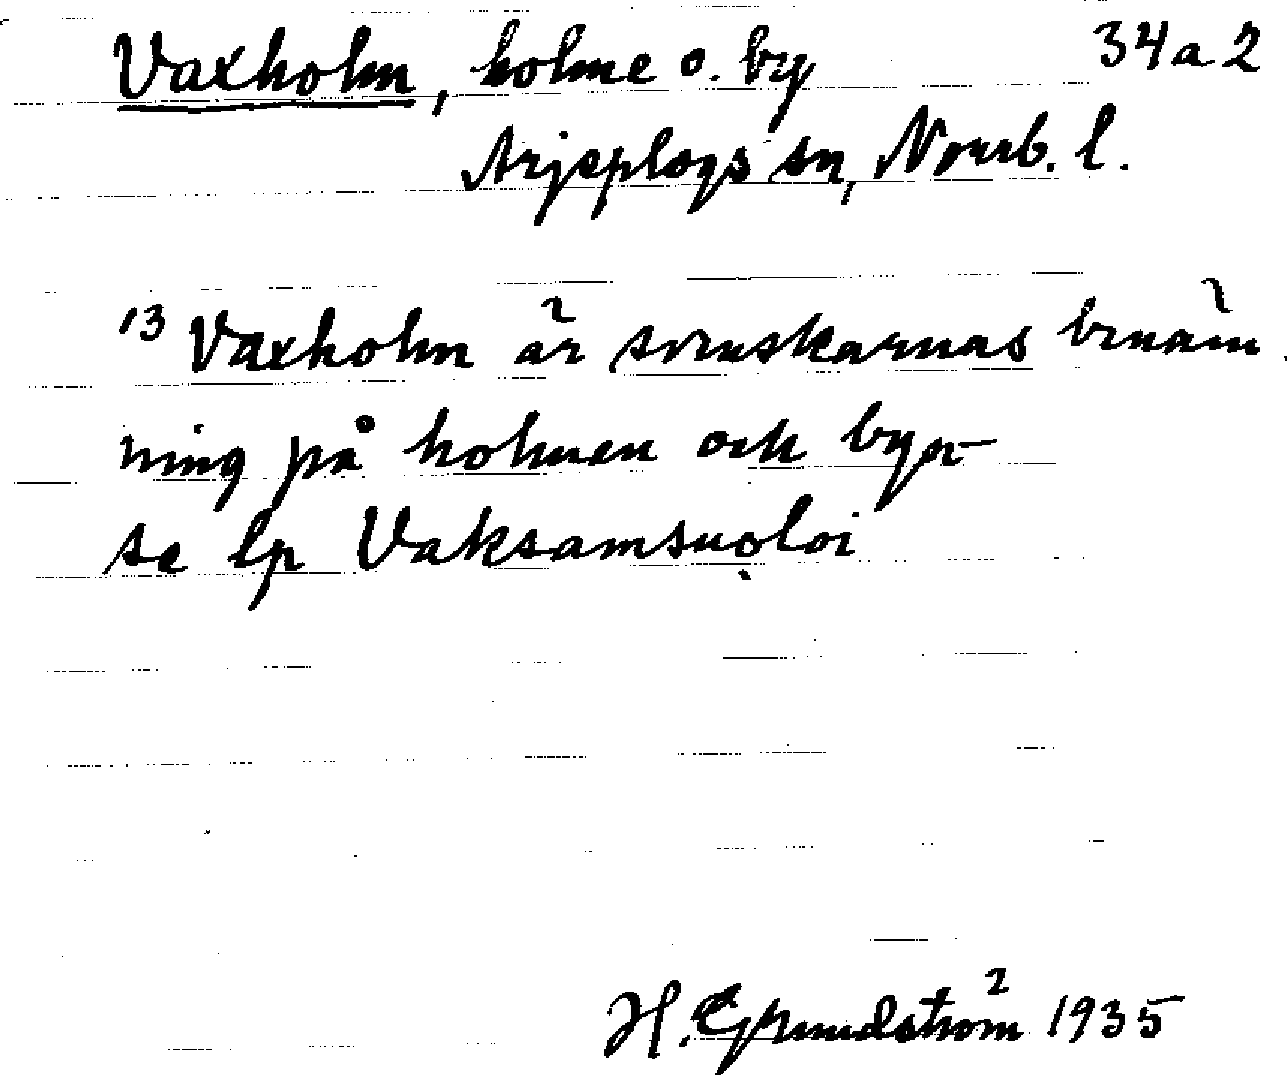 Vaxholm, holme o. by 34a2
Arjeplogs sn, Norrb. l.
13 Vaxholm är svenskarnas benäm
ning på holmen och byn
se lp Vaksamsuọloi
H. Grundström 1935